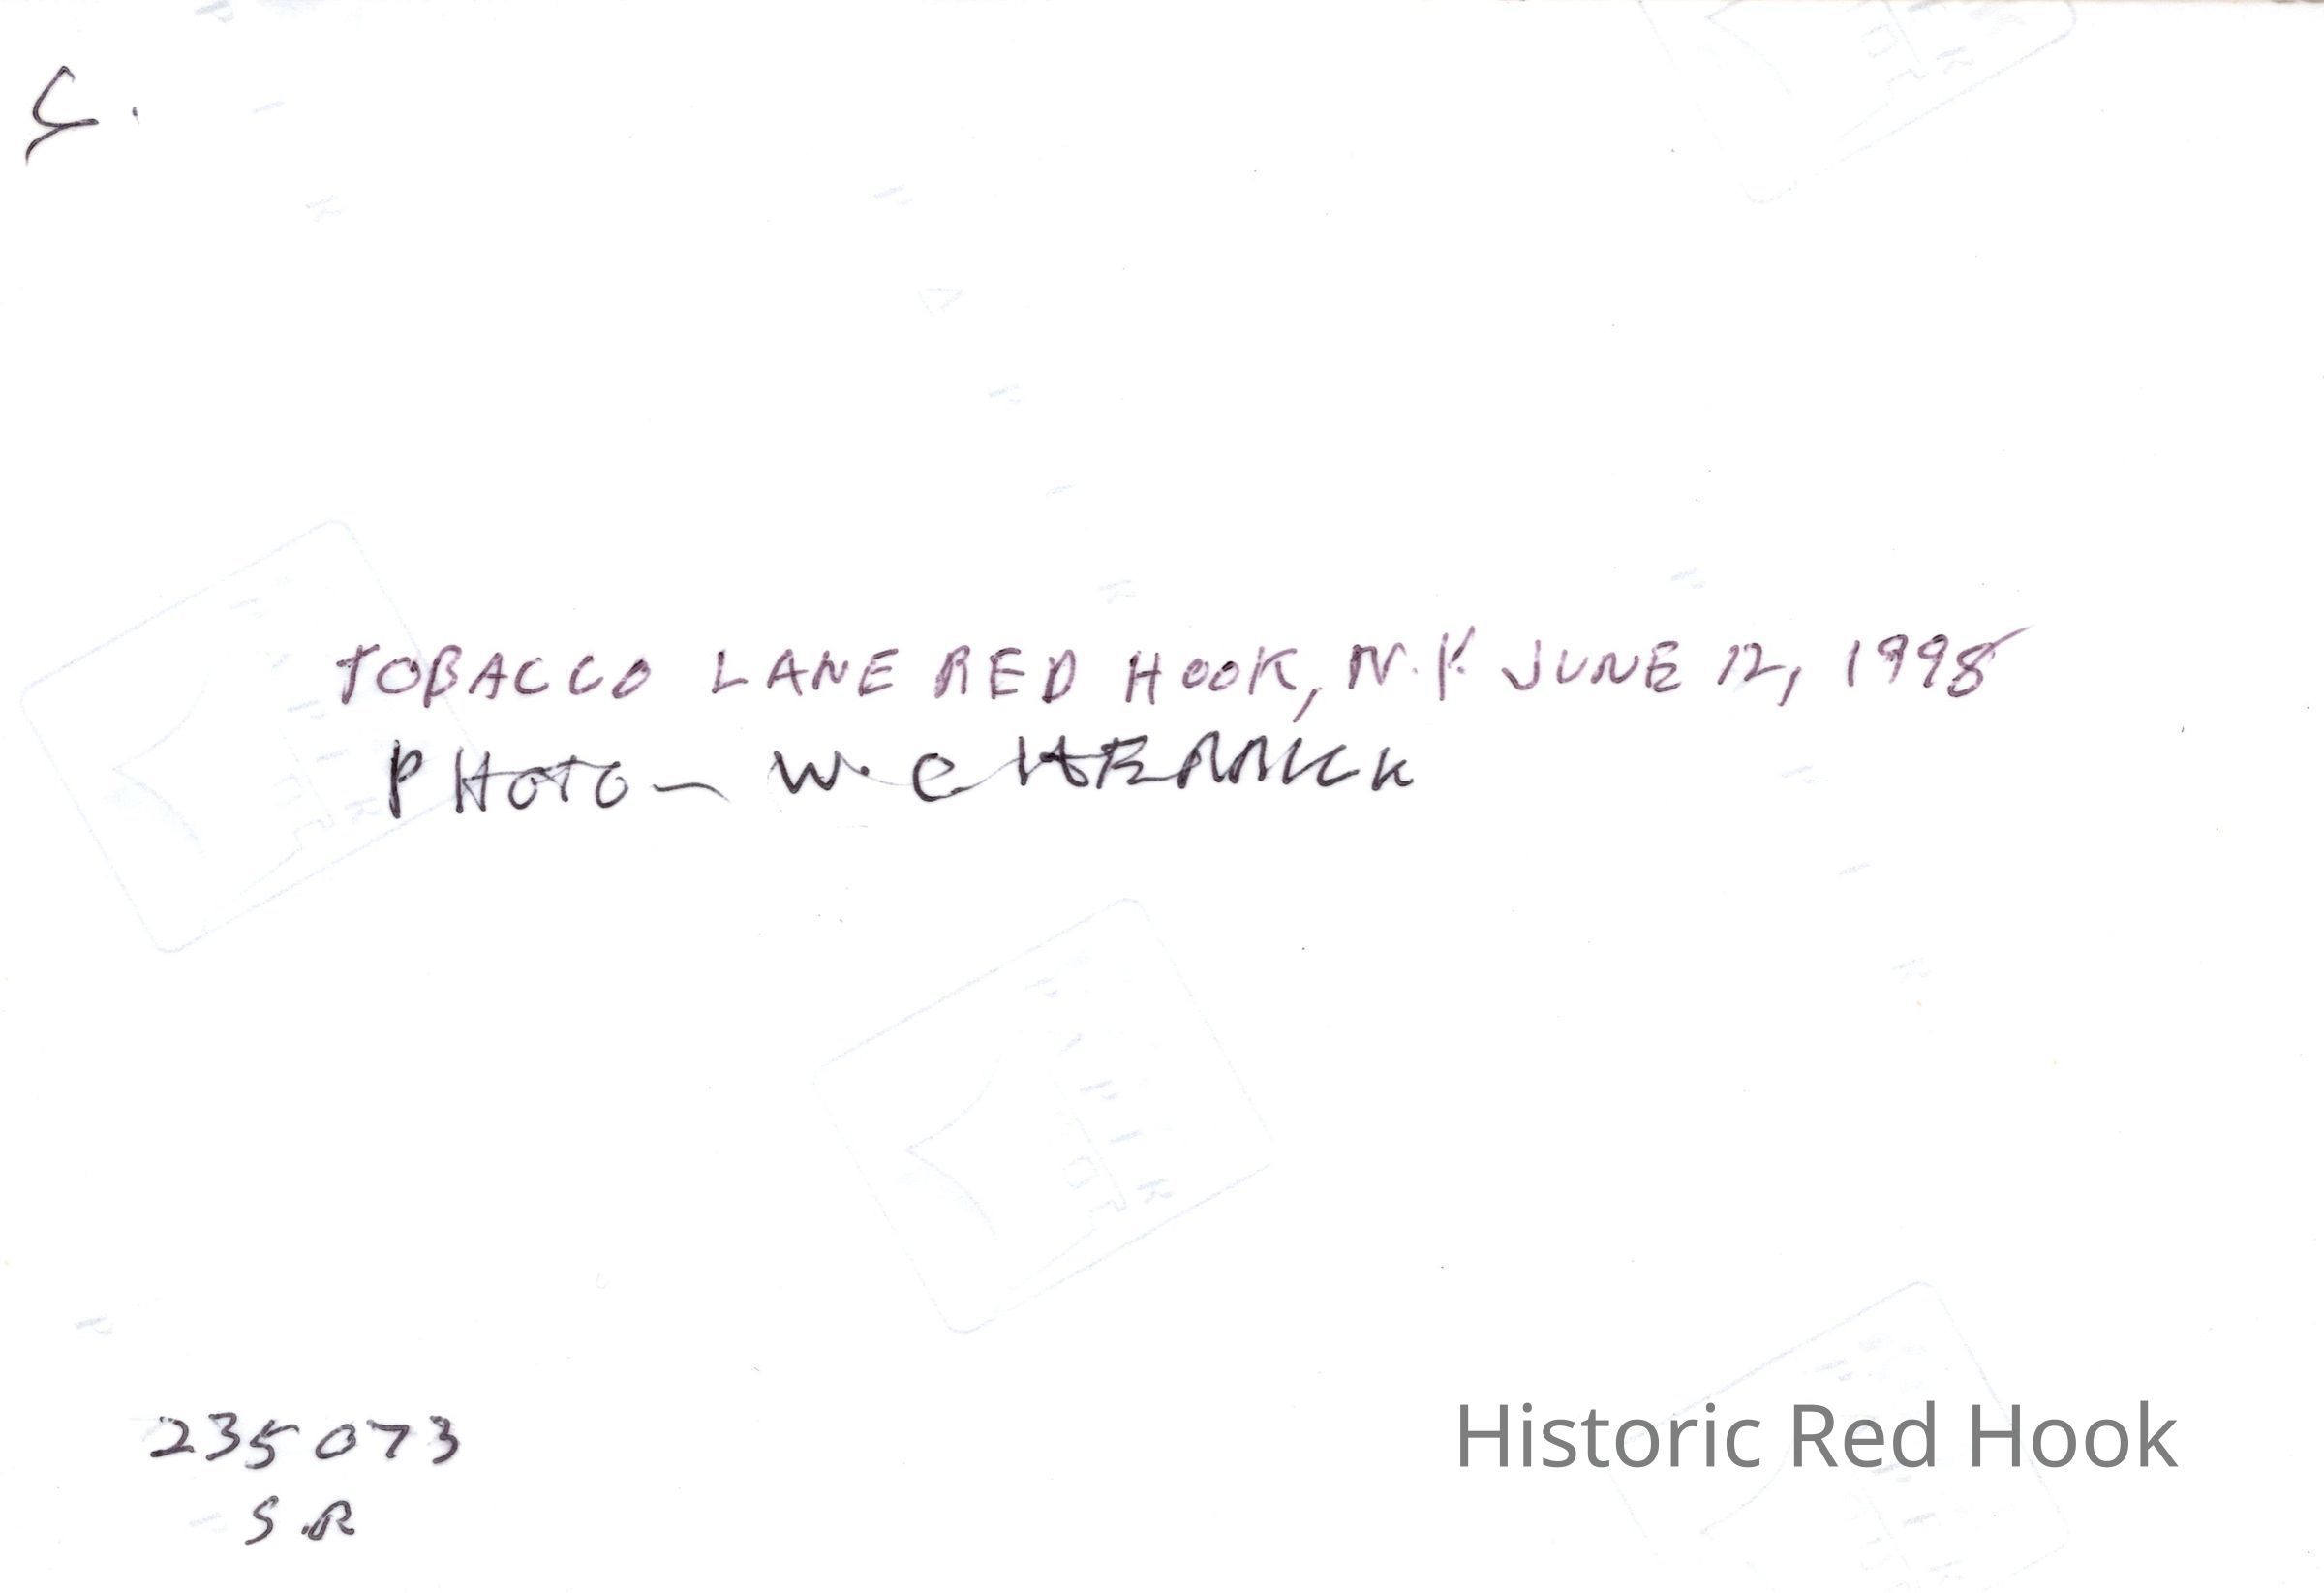 TOBACCO LANE RED HOOK, N.Y. JUNE 12, 1998
PHOTO — W. C
235073
S.R
Historic Red Hook